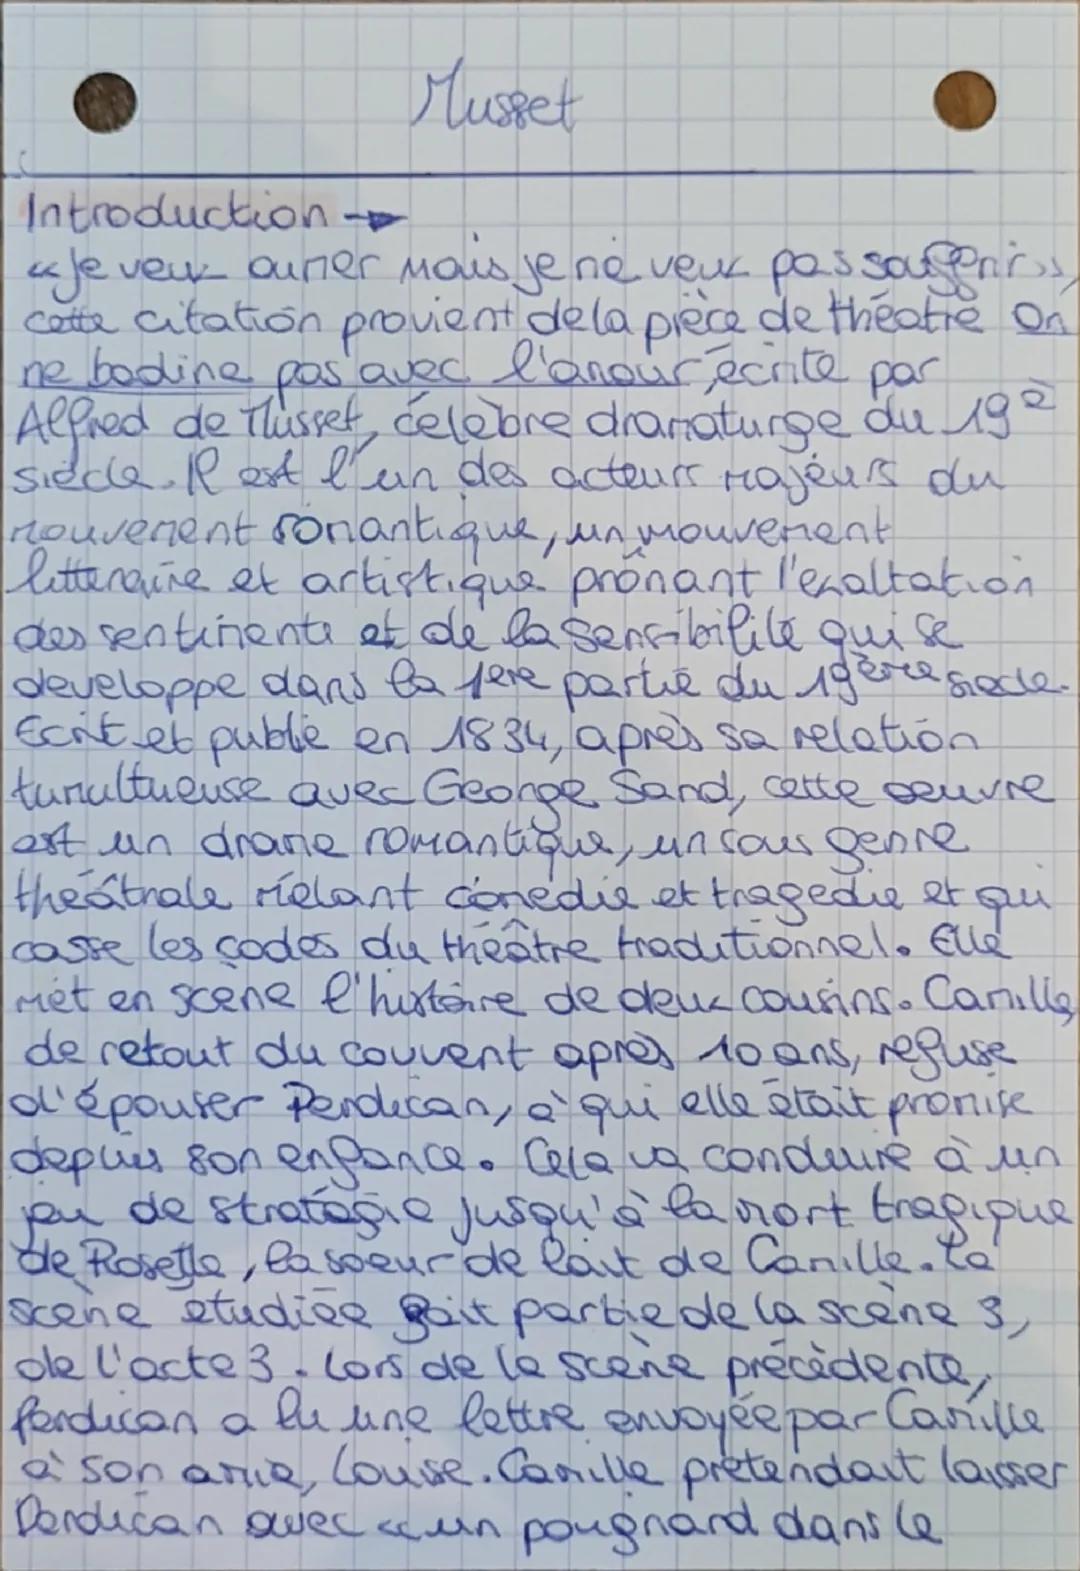 Musset
Introduction →
« Je veux aimer mais je ne veux pas souffrir »,
cette citation provient de la pièce de théatre On
ne badine pas avec l'amour, écrite par
Alfred de Musset, célèbre dramaturge du 19è
siècle. Il est l'un des acteurs majeurs du
mouvement romantique, un mouvement
litteraire et artistique prônant l'exaltation
des sentiments et de la sensibilité qui se
developpe dans la 1ere partie du 19ème siècle.
Ecrit et publié en 1834, après sa relation
tumultueuse avec George Sand, cette oeuvre
est un drame romantique, un sous genre
théâtrale mêlant comédie et tragedie et qui
casse les codes du théâtre traditionnel. Elle
met en scène l'histoire de deux cousins. Camille,
de retout du couvent après 10 ans, refuse
d'épouser Perdican, à qui elle était promise
depuis son enfance. Cela va conduire à un
jeu de stratégie jusqu'à la mort tragique
de Rosette, la soeur de lait de Camille. La
scène étudiée fait partie de la scène 3,
de l'acte 3. Lors de la scène précédente,
Perdican a lu une lettre envoyée par Camille
à son amie, Louise. Camille prétendait laisser
Perdican avec « un poignard dans le